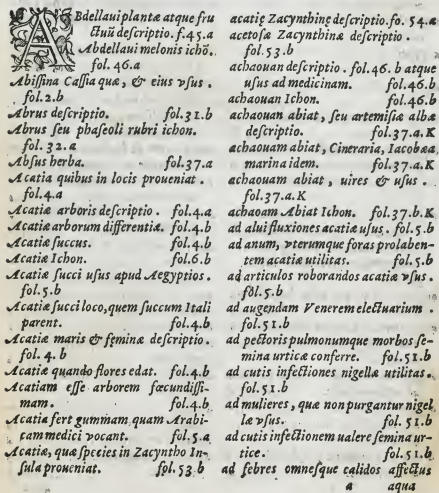 ABdellaui plantæ atque fru
ctuũ descriptio. f.45.a
Abdellaui melonis ichõ.
fol.46.a
Abissina Cassia quæ, & eius vsus.
fol.2.b
Abrus descriptio. fol.31.b
Abrus seu phaseoli rubri ichon.
fol. 32.a
Absus herba. fol.37.a
Acatia quibus in locis proueniat.
fol.4.a
Acatiæ arboris descriptio. fol.4.a
Acatiæ arborum differentiæ. fol.4.b
Acatiæ succus. fol.4.b
Acatiæ Ichon. fol.6.b
Acatiæ succi usus apud Aegyptios.
fol.5.b
Acatiæ succi loco, quem succum Itali
parent. fol.4.b
Acatiæ maris & feminæ descriptio.
fol. 4. b
Acatiæ quando flores edat. fol.4.b
Acatiam esse arborem fœcundissi-
mam. fol.4.b
Acatia fert gummam, quam Arabi-
cam medici vocant. fol.5.a
Acatiæ, quæ species in Zacyntho In-
sula proueniat. fol.53.b
acatię Zacynthinę descriptio. fo. 54.a
acetosæ Zacynthinæ descriptio.
fol.53.b
achaouan descriptio. fol.46.b atque
usus ad medicinam. fol.46.b
achaouan Ichon. fol.46.b
achaouan abiat, seu artemisiæ albæ
descriptio. fol.37.a.K
achaouam abiat, Cineraria, Iacobæa
marina idem. fol.37.a.K
achaouam abiat, uires & usus.
fol.37.a.K
achaoam Abiat Ichon. fol.37.b.K
ad alui fluxiones acatiæ usus. fol.5.b
ad anum, vterumque foras prolaben-
tem acatiæ utilitas. fol.5.b
ad articulos roborandos acatiæ vsus.
fol.5.b
ad augendam Venerem electuarium.
fol.51.b
ad pectoris pulmonumque morbos se-
mina urticæ conferre. fol.51.b
ad cutis infectiones nigellæ utilitas.
fol.51.b
ad mulieres, quæ non purgantur nigel
læ vsus. fol. 51.b
ad cutis infectionem ualere semina ur-
ticæ. fol.51.b
ad febres omnesque calidos affectus
a aqua